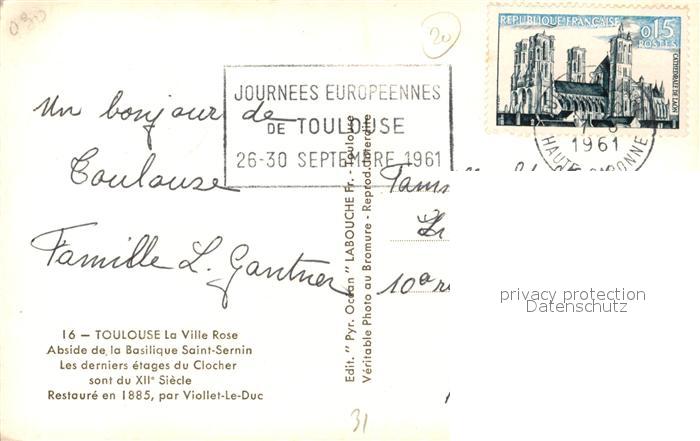 030
20
REPUBLIQUE FRANÇAISE
0,15
POSTES
CATHÉDRALE DE LAON
JOURNEES EUROPEENNES
DE TOULOUSE
26-30 SEPTEMBRE 1961
1961
HAUTE GARONNE
Un bonjour de
Toulouse
Famille L. Gantner
10a
privacy protection
Datenschutz
Edit. " Pyr. Océan " LABOUCHE Fr. - Toulouse
Véritable Photo au Bromure - Reprod. Interdite
16 — TOULOUSE La Ville Rose
Abside de la Basilique Saint-Sernin
Les derniers étages du Clocher
sont du XIIe Siècle
Restauré en 1885, par Viollet-Le-Duc
31